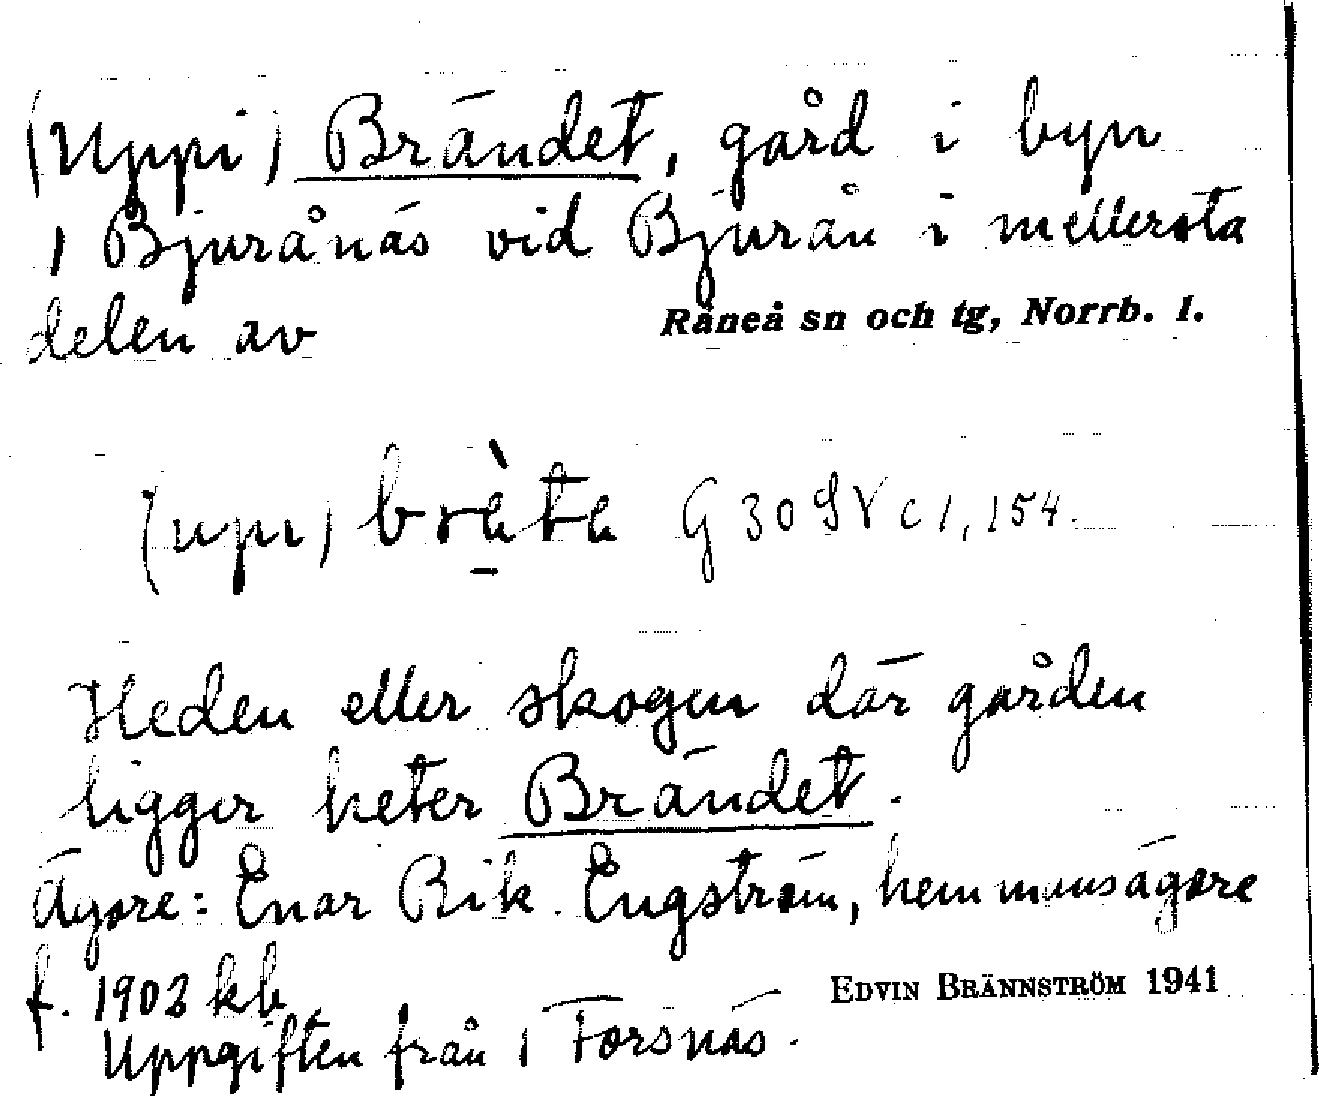 (Uppi) Brändet, gård i byn
1 Bjurånäs vid Bjurån i mellersta
delen av Råneå sn och tg, Norrb. l.
(upi) brèta G 30 SV c 1, 154.
Heden eller skogen där gården
ligger heter Brändet.
Ägare: Enar Rik. Engström, hemmansägare
f. 1903 kb EDVIN BRÄNNSTRÖM 1941
Uppgiften från 1 Forsnäs.